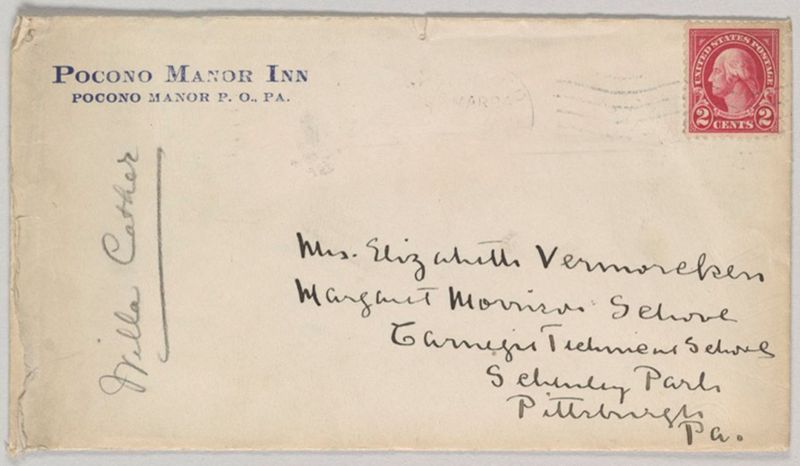 POCONO MANOR INN
POCONO MANOR P. O., PA.
UNITED STATES POSTAGE
2 CENTS 2
Willa Cather
Mrs. Elizabeth Vermorcken
Margaret Morrison School
Carnegie Technical Schools
Schenley Park
Pittsburgh
Pa.